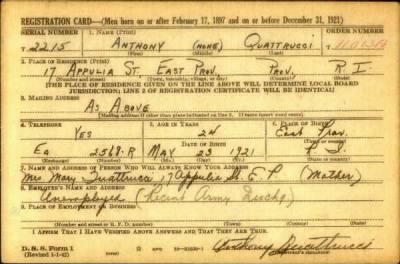 REGISTRATION CARD—(Men born on or after February 17, 1897 and on or before December 31, 1921)
SERIAL NUMBER 1. NAME (Print) ORDER NUMBER
T 2215 ANTHONY (NONE) QUATTRUCCI
(First) (Middle) (Last)
2. PLACE OF RESIDENCE (Print)
17 APPULIA ST. EAST PROV. PROV. R. I.
(Number and street) (Town, township, village, or city) (County) (State)
[THE PLACE OF RESIDENCE GIVEN ON THE LINE ABOVE WILL DETERMINE LOCAL BOARD
JURISDICTION; LINE 2 OF REGISTRATION CERTIFICATE WILL BE IDENTICAL]
3. MAILING ADDRESS
AS ABOVE
[Mailing address if other than place indicated on line 2. If same insert word same]
4. TELEPHONE 5. AGE IN YEARS 6. PLACE OF BIRTH
YES East Prov.
DATE OF BIRTH (Town or county)
Ea 2568-R MAY 23 1921 R. I.
(Exchange) (Number) (Mo.) (Day) (Yr.) (State or country)
7. NAME AND ADDRESS OF PERSON WHO WILL ALWAYS KNOW YOUR ADDRESS
Mrs Mary Quattrucci 17 Appulia St. E. P. (Mother)
8. EMPLOYER'S NAME AND ADDRESS
Unemployed Army
9. PLACE OF EMPLOYMENT OR BUSINESS
(Number and street or R. F. D. number) (Town) (County) (State)
I AFFIRM THAT I HAVE VERIFIED ABOVE ANSWERS AND THAT THEY ARE TRUE.
D. S. S. Form 1
(Revised 1-1-42) (over) Anthony Quattrucci
(Registrant's signature)